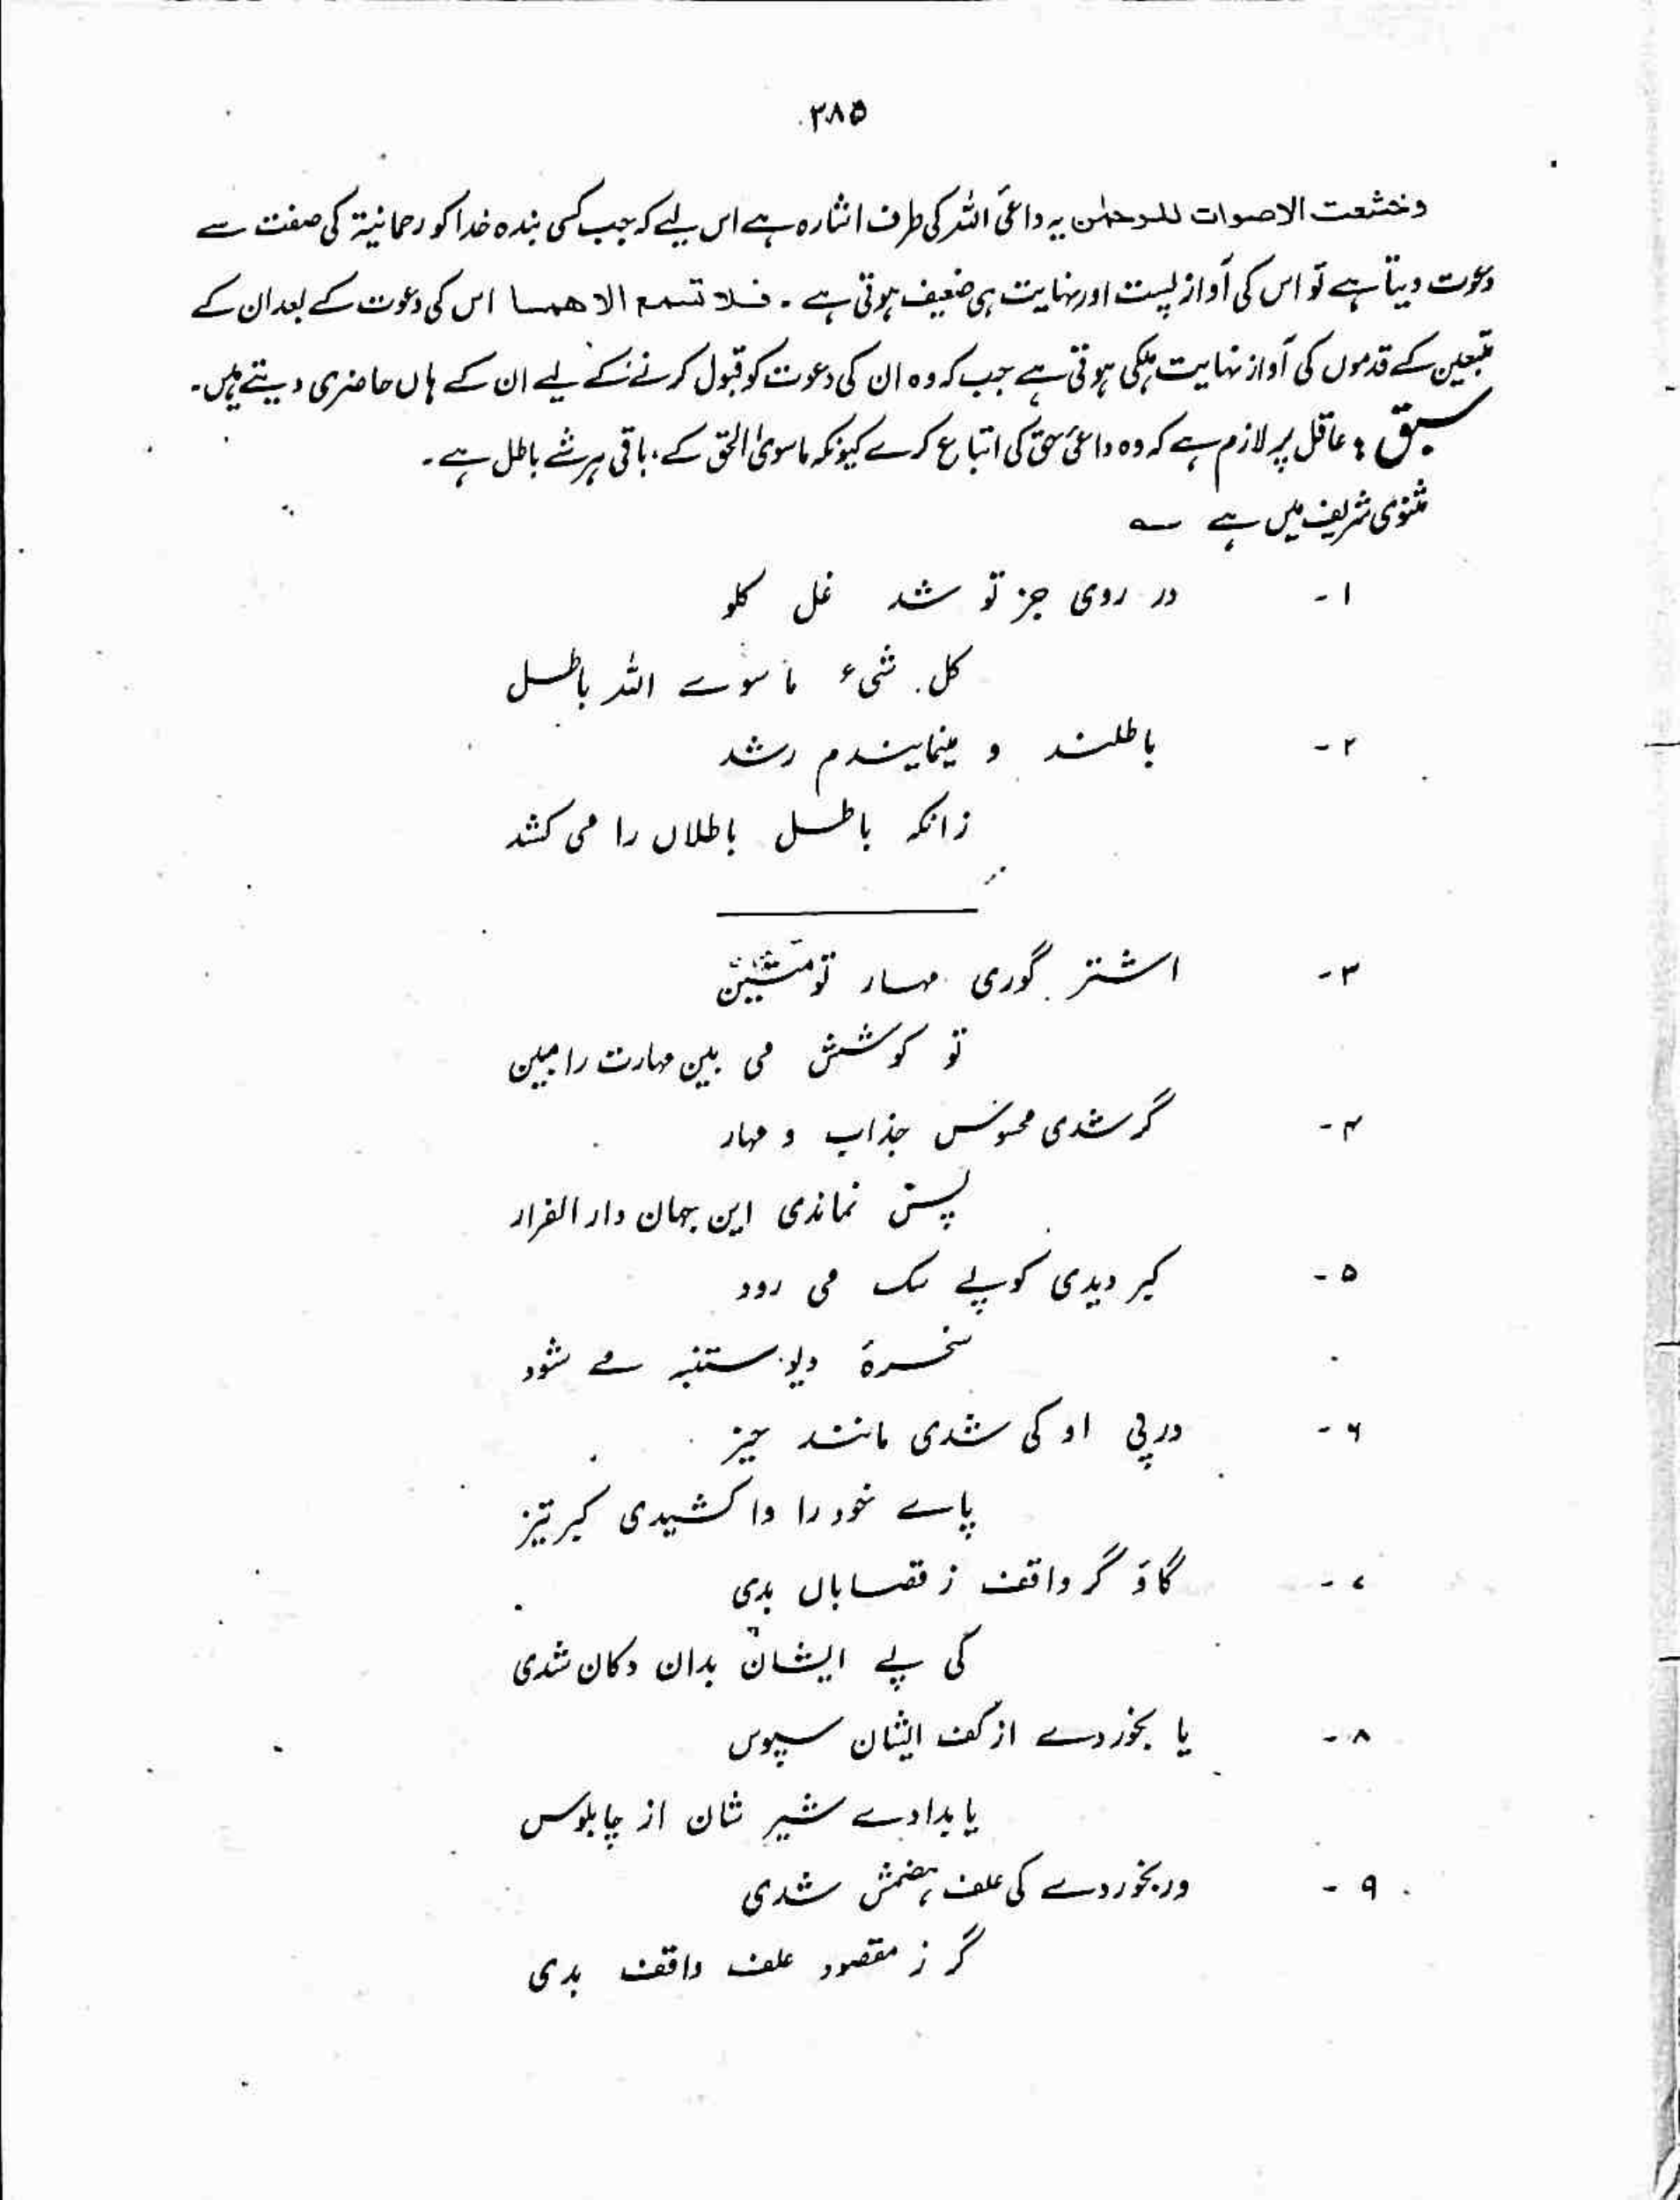 ۳۸۵
وخشعت الاصوات للرحمٰن یہ داعیٔ اللہ کی طرف اشارہ ہے اس لیے کہ جب کسی بندہ خدا کو رحمانیۃ کی صفت سے
دعوت دیتا ہے تو اس کی آواز پست اور نہایت ہی ضعیف ہوتی ہے ۔ فلا تسمع الا ھمسا اس کی دعوت کے بعد ان کے
متبعین کے قدموں کی آواز نہایت ہلکی ہوتی ہے جب کہ وہ ان کی دعوت کو قبول کرنے کے لیے ان کے ہاں حاضری دیتے ہیں۔
سبق : عاقل پر لازم ہے کہ وہ داعیٔ حق کی اتباع کرے کیونکہ ماسوی الحق کے، باقی ہر شے باطل ہے ۔
مثنوی شریف میں ہے ؎
۱- در روی جز تو شد غل گلو
کل شیء ما سوے اللہ باطل
۲- باطلند و مینمایندم رشد
زانکہ باطل باطلاں را می کشد
۳- اشتر گوری مہار تو متین
تو کوشش می بین مہارت را مبین
۴- گر شدی محسوس جذاب و مہار
پس نماندی این جہان دار الفرار
۵- گبر دیدی کو پے سگ می رود
سخرۂ دیو ستنبہ مے شود
۶- در پی او کی شدی مانند حیز
پاے خود را وا کشیدی گبر تیز
۷- گاؤ گر واقف ز قصاباں بدی
کی پے ایشان بدان دکان شدی
۸- یا بخوردے از کف ایشان سپوس
یا بدادے شیر شان از چاپلوس
۹- ور بخوردے کی علف ہضمش شدی
گر ز مقصود علف واقف بدی